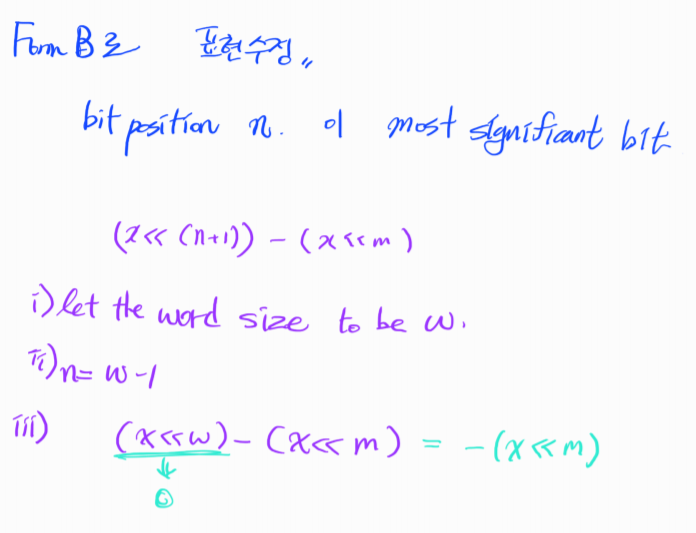 Form B로 표현수정 〃
bit position n. 이 most significant bit
(x << (n+1)) - (x << m)
i) let the word size to be w.
ii) n = w - 1
iii) (x << w) - (x << m) = - (x << m)
0